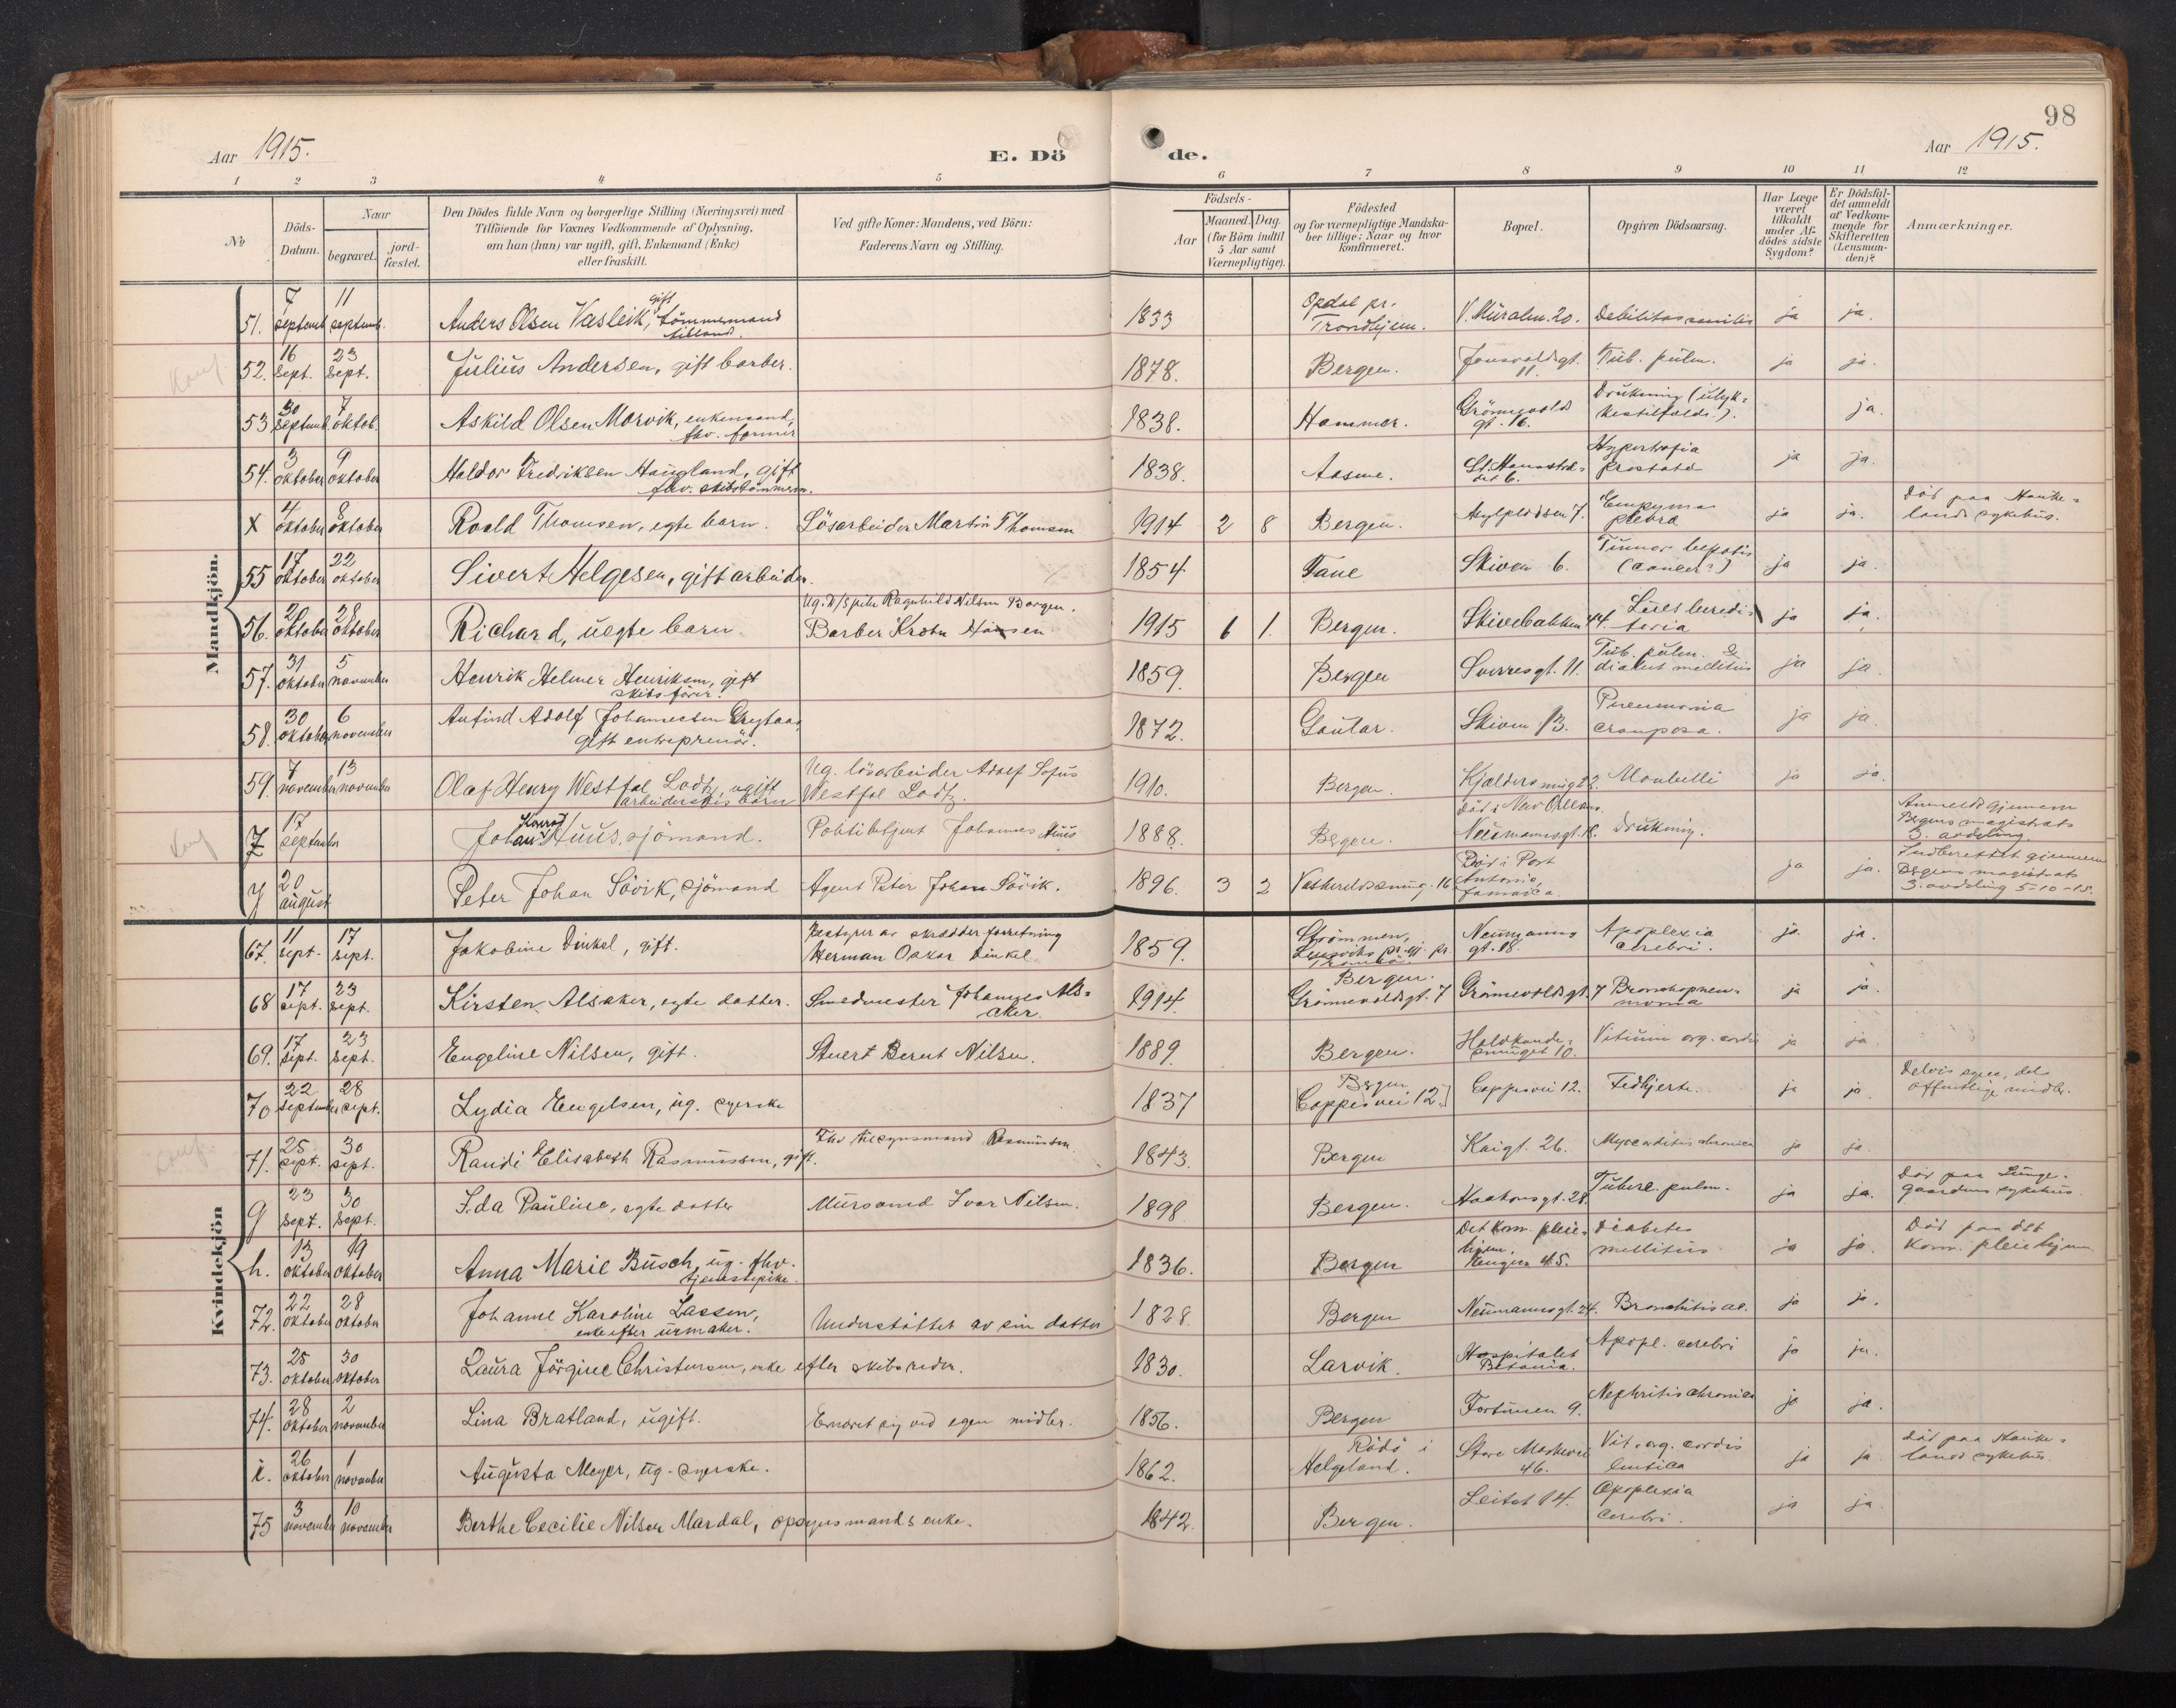 98
Aar 1915.
E. Döde.
Aar 1915.
1 2 3 4 5 6 7 8 9 10 11 12
No
Döds-Datum.
Naar
begravet.
jord-fæstet.
Den Dödes fulde Navn og borgerlige Stilling (Næringsvei) med
Tilföiende for Voxnes Vedkommende af Oplysning,
om han (hun) var ugift, gift, Enkemand (Enke)
eller fraskilt.
Ved gifte Koner: Mandens, ved Börn:
Faderens Navn og Stilling.
Födsels-
Aar
Maaned. Dag.
(for Börn indtil
5 Aar samt
Værnepligtige).
Födested
og for værnepligtige Mandska-
ber tillige: Naar og hvor
konfirmeret.
Bopæl.
Opgiven Dödsaarsag.
Har Læge
været
tilkaldt
under Af-
dödes sidste
Sygdom?
Er Dödsfal-
det anmeldt
af Vedkom-
mende for
Skifteretten
(Lensman-
den)?
Anmærkninger.
Mandkjön.
51. 7 septemb. 11 septemb. Anders Olsen Vasleik, gift tömmermand 1833 Opdal pr. Trondhjem. V. Muralm. 20. Debilitas senilis ja ja.
52. 16 sept. 23 sept. Julius Andersen, gift barber. 1878. Bergen. Jonsvoldsgt. 11. Tub. pulm. ja ja.
53 30 septemb. 7 oktob. Askild Olsen Morvik, enkemand, fhv. former 1838. Hammer. Grönnevolds gt. 16. Drukning (ulyk- kestilfælde). ja.
54. 3 oktober 9 oktober Haldor Fredriksen Haugland, gift fhv. skibstömmerm. 1838. Aasane. St. Hansstræ- det 6. Hypertrofia prostata ja ja.
X 4 oktober 8 oktober Roald Thomsen, egte barn. Lösarbeider Martin Thomsen 1914 2 8 Bergen. 7. Empyema pleura ja ja. Död paa Hauke- lands sykehus.
55 17 oktober 22 oktober Sivert Helgesen, gift arbeider. 1854 Fane Skiven 6. Tumor hepatis (cancer?) ja ja.
56. 20 oktober 28 oktober Richard, uegte barn. Ug. Ragnhild Nilsen Bergen. Barber Hansen 1915 6 1. Bergen. Skivebakken 44. Lues heredi- taria ja ja.
57. 31 oktober 5 november Henrik Helmer Henriksen, gift skibsförer. 1859. Bergen Sverresgt. 11. Tub. pulm. & diabet mellitus ja ja.
58. 30 oktober 6 november Anfind Adolf Johannessen gift entreprenör. 1872. Gaular. Skiven 13. Pneumonia crouposa. ja ja.
59. 7 november 13 november Olaf Henry Westfal Lodtz, ugift arbeiderskes barn Ug. lösarbeider Adolf Sofus Westfal Lodtz. 1910. Bergen. Kjældersmug 22. Morbilli ja ja.
Z 17 september Johan Konrad Huus, sjömand. Politibetjent Johannes Huus 1888. Bergen. Död i New Orleans. Neumannsgt. 18. Drukning. Anmeldt gjennem Bergens magistrats 3. avdeling.
Y 20 august Peter Johan Sövik, sjömand Agent Peter Johan Sövik. 1896. 3 2 16 Död i Port Antonio, Jamaica. ja ja. Indberettet gjennem Bergens magistrats 3. avdeling 5-10-15.
Kvindekjön
67. 11 sept. 17 sept. Jakobine Dinkel, gift. Bestyrer av skrædderforretning Herman Oskar Dinkel 1859. Strömmen, Neumanns gt. 18. Apoplexia cerebri. ja ja.
68 17 sept. 23 sept. Kirsten Alsaker, egte datter. Smedmester Johannes Als- aker. 1914. Bergen. Grönnevoldsgt. 7 Grönnevoldsgt. 7 Bronchopneu- monia ja ja.
69. 17 sept. 23 sept. Engeline Nilsen, gift. Stuert Bernt Nilsen. 1889. Bergen. Holdkande- smuget 10. Vitium org. cordis ja ja.
70 22 september 28 sept. Lydia Engelsen, ug. syerske 1837 Bergen [Coppesvei 12.] Coppesvei 12. Fedhjerte. ja ja. Delvis egne, dels offentlige midler.
71. 25 sept. 30 sept. Randi Elisabeth Rasmussen, gift. Fhv tilsynsmand Rasmussen 1843. Bergen Kaigt. 26. Myocarditis chronica ja ja.
g 23 sept. 30 sept. Ida Pauline, egte datter Mursvend Ivar Nilsen. 1898 Bergen. Haakonsgt. 28. Tuberc. pulm. ja ja. Död paa Lunge- gaardens sykehus.
h. 13 oktober 19 oktober Anna Marie Busch, ug. fhv. tjenestepike. 1836. Bergen Det kom. pleie- hjem. Kengen 45. Diabetes mellitus ja ja. Död paa det kom. pleiehjem
72. 22 oktober 28 oktober Johanne Karoline Lassen, enke efter urmaker. Understöttet av sin datter 1828. Bergen Neumannsgt. 24. Bronchitis ac. ja ja.
73. 25 oktober 30 oktober Laura Jörgine Christensen, enke efter skibsreder. 1830. Larvik. Hospitalet Betania. Apopl. cerebri ja ja.
74. 28 oktober 2 november Lina Bratland, ugift. Ernæret sig ved egen midler. 1856. Bergen Fortunen 9. Nephritis chronica ja ja.
i. 26 oktober 1 november Augusta Meyer, ug. syerske. 1862. Rödö i Helgeland. Store Markevei 46. Vit. org. cordis ja ja Död paa Hauke- lands sykehus.
75 3 november 10 november Berthe Cecilie Nilsen Mardal, opsynsmands enke. 1842. Bergen. Leitet 14. Apoplexia cerebri. ja ja.